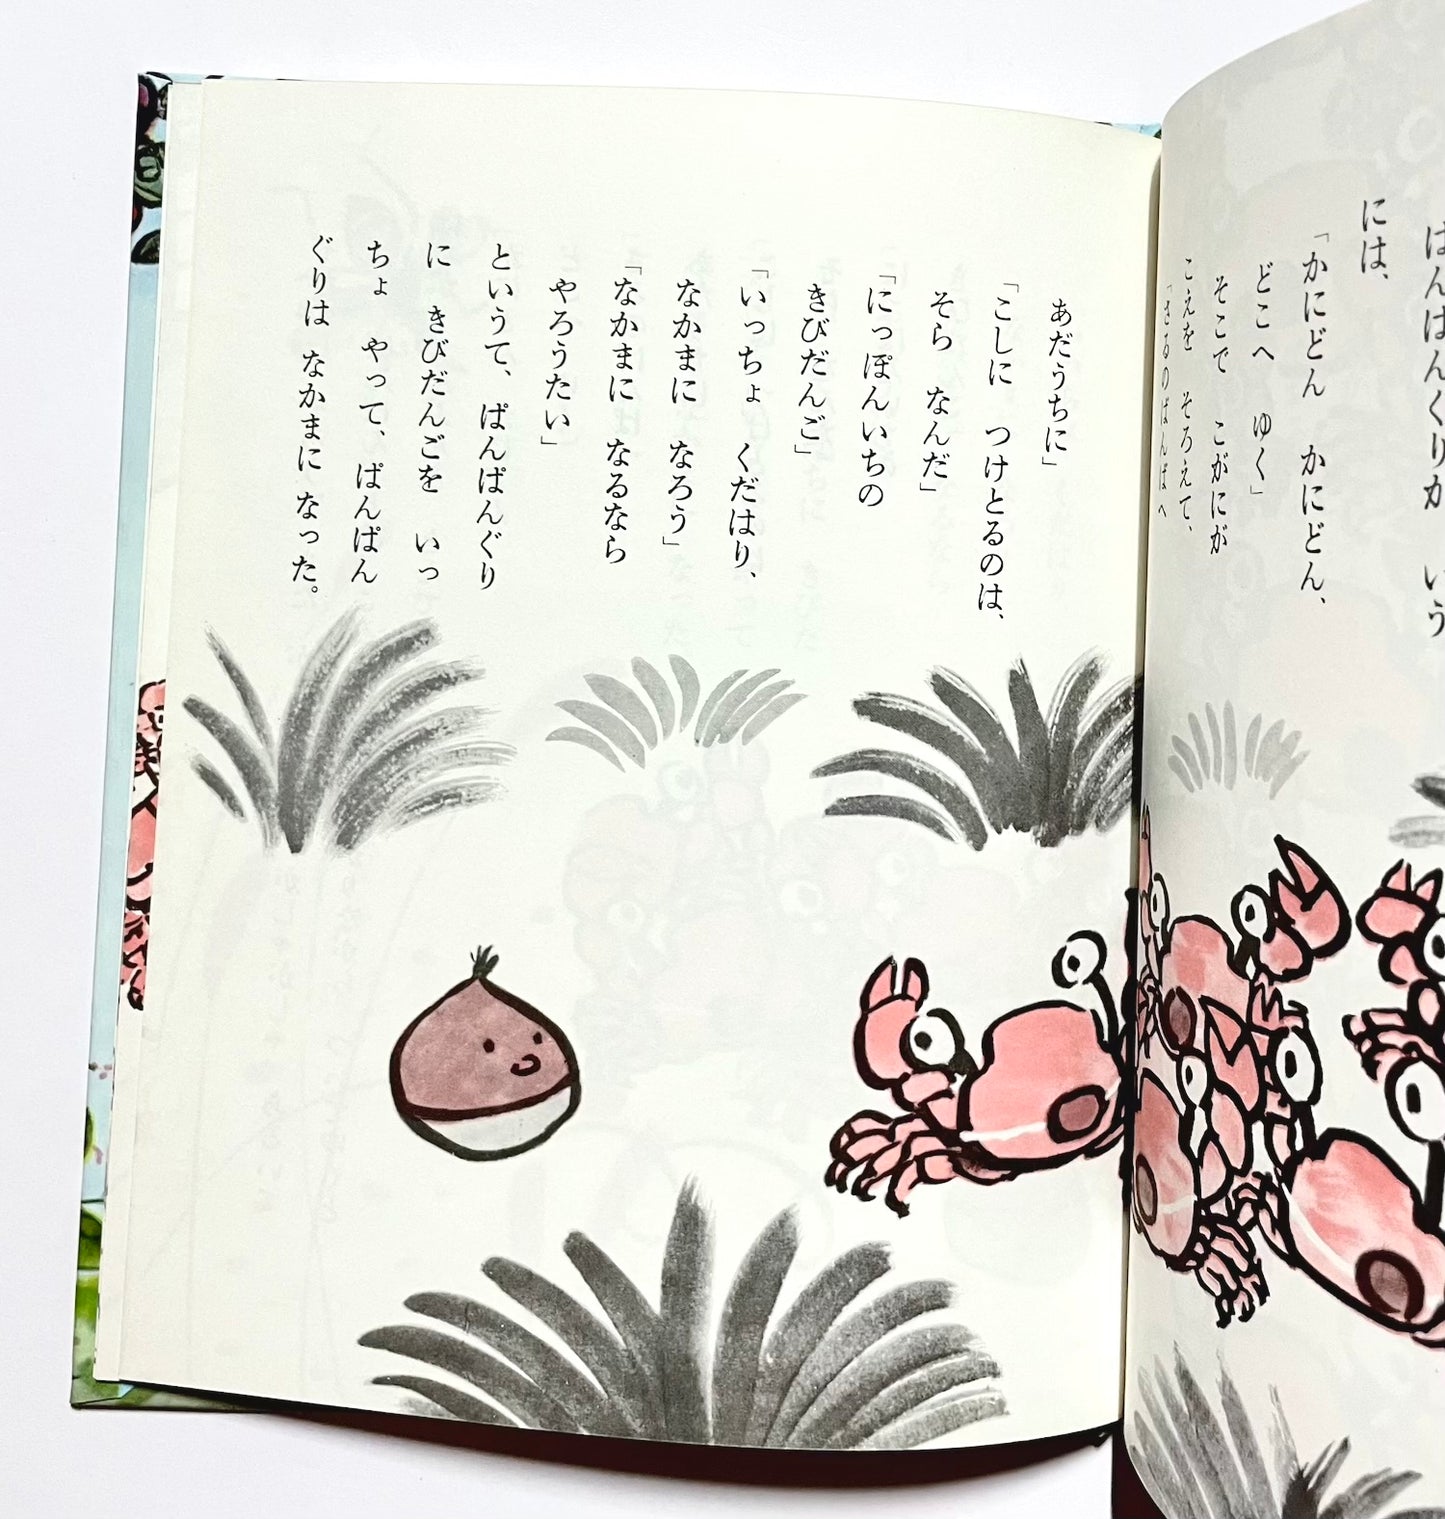 には、
「かにどん　かにどん、
どこへ　ゆく」
そこで　こがにが
こえを　そろえて、
「さるのばんばへ
あだうちに」
「こしに　つけとるのは、
そら　なんだ」
「にっぽんいちの
きびだんご」
「いっちょ　くだはり、
なかまに　なろう」
「なかまに　なるなら
やろうたい」
というて、ぱんぱんぐり
に　きびだんごを　いっ
ちょ　やって、ぱんぱん
ぐりは　なかまに　なった。